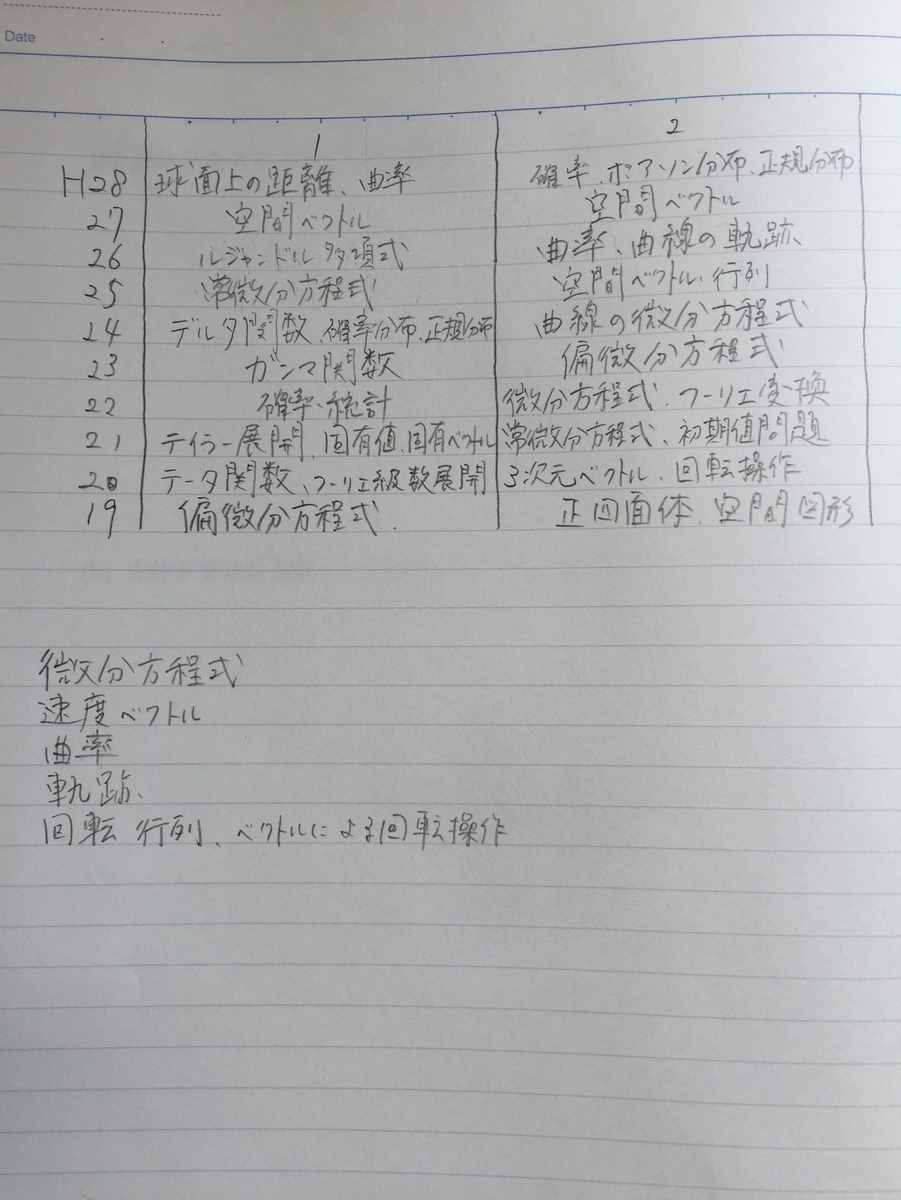 Date
1 2
H28 球面上の距離、曲率 確率、ポアソン分布、正規分布
27 空間ベクトル 空間ベクトル
26 ルジャンドル多項式 曲率、曲線の軌跡、
25 常微分方程式 空間ベクトル、行列
24 デルタ関数、確率分布、正規分布 曲線の微分方程式
23 ガンマ関数 偏微分方程式
22 確率・統計 微分方程式、フーリエ変換
21 テイラー展開、固有値、固有ベクトル 常微分方程式、初期値問題
20 テータ関数、フーリエ級数展開 3次元ベクトル、回転操作
19 偏微分方程式、 正四面体、空間図形
微分方程式
速度ベクトル
曲率
軌跡、
回転 行列、ベクトルによる回転操作